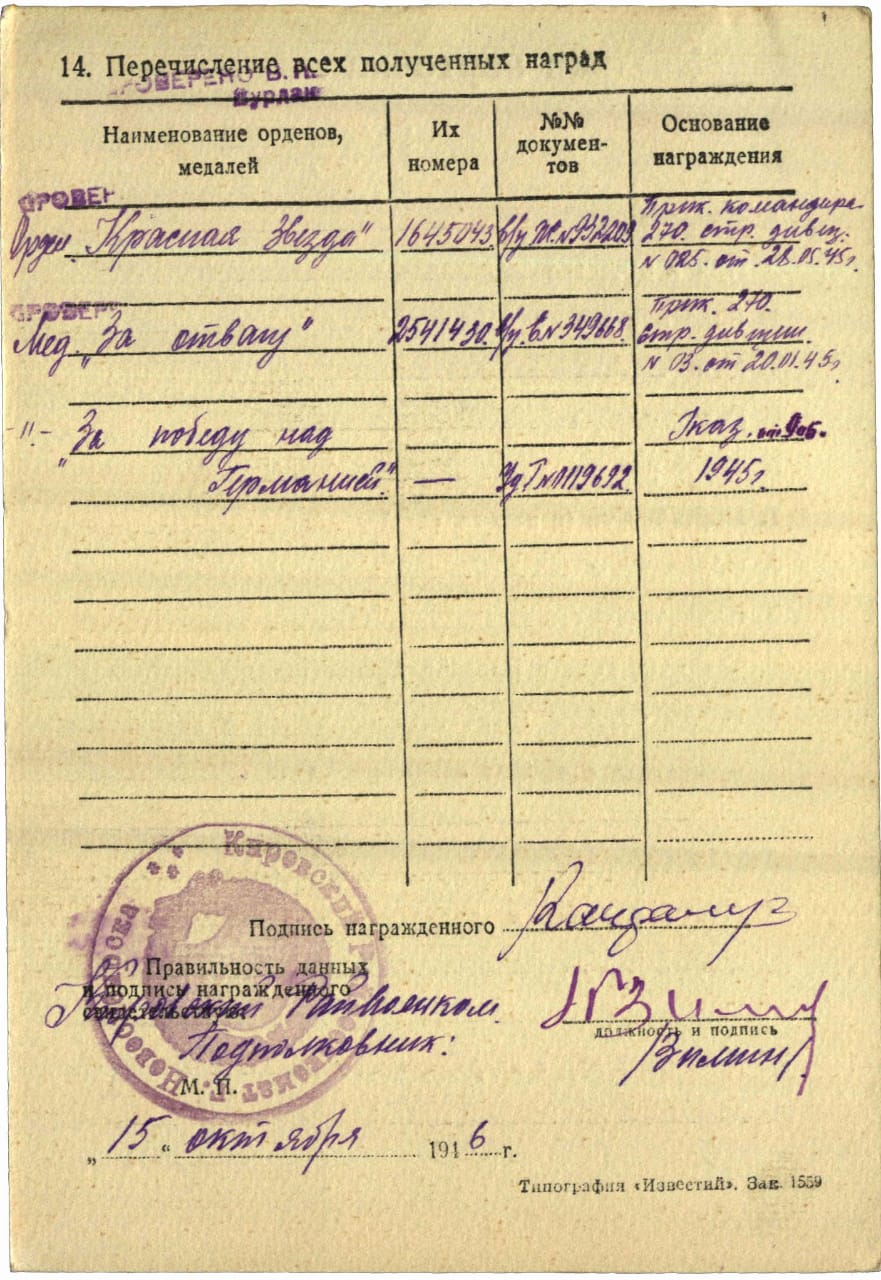 14. Перечисление всех полученных наград
ПРОВЕРЕНО
Бурлак
Наименование орденов, медалей
Их номера
№№ документов
Основание награждения
ПРОВЕР
Орден „Красная Звезда" 1645043 в/у Ж.№932203 Прик. командира
270. стр. дивиз.
N 025. от 28.05.45г.
ПРОВЕР
Мед. „За отвагу" 2541430. в/у. Е№349668. Прик. 270.
стр. дивизии
N 03. от 20.01.45г.
-"- „За победу над Указ. от 9
Германией." — Уд Г №0119692. 1945г.
Подпись награжденного
Правильность данных
и подпись награжденного
свидетельствую:
Кировский Райвоенком.
Подполковник:
должность и подпись
М. П.
„ 15 " октября 1946 г.
Типография «Известий». Зак. 1559